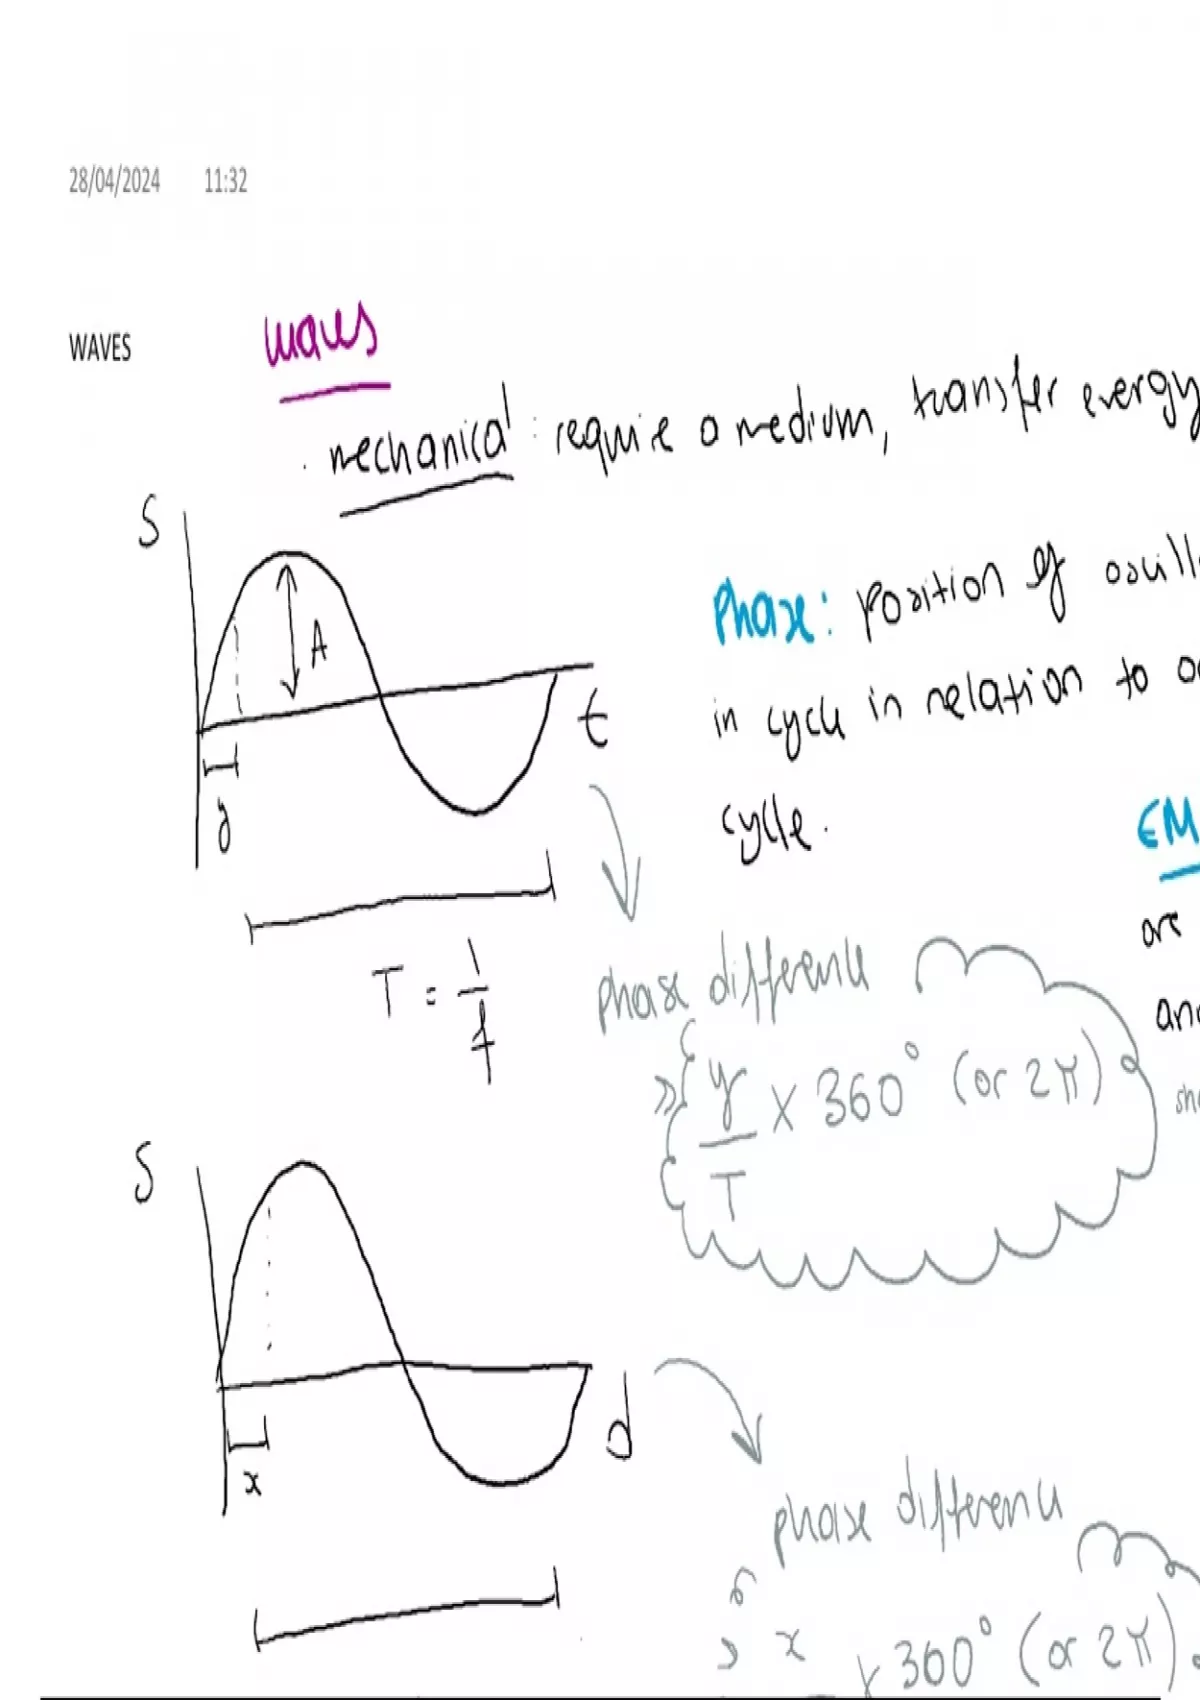 28/04/2024 11:32
WAVES
waves
mechanical: require a medium, transfer energy
S
A
t
y
Phase: position of oscill
in cycle in relation to
cycle.
EM
are
T = 1/f
phase difference
y/T × 360° (or 2π)
S
d
x
phase difference
x × 360° (or 2π)